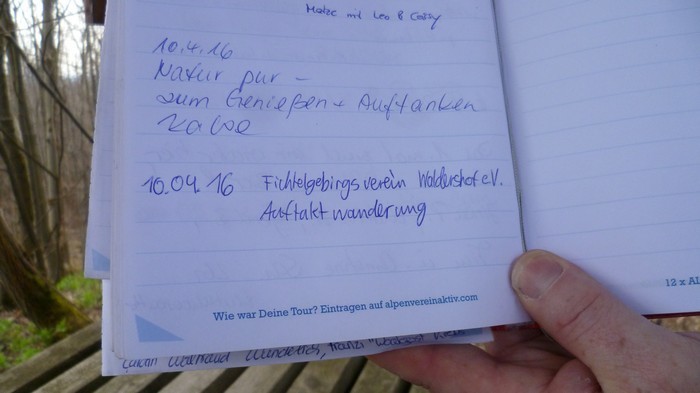 Matze mit Leo & Conny
10.4.16
Natur pur –
zum Genießen + Auftanken
10.04.16 Fichtelgebirgsverein Waldershof e.V.
Auftaktwanderung
Wie war Deine Tour? Eintragen auf alpenvereinaktiv.com
12 x AL